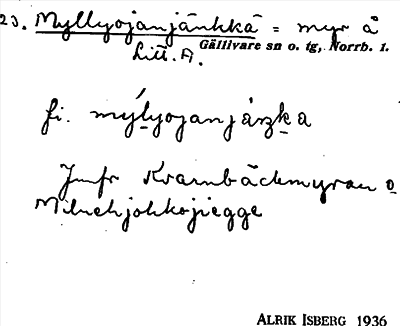 23. Myllyojanjänkkä = myr å
Gällivare sn o. tg, Norrb. l.
Litt. A.
fi. mýlyojanjäŋka
Jmfr Kvarnbäckmyran o
Miluchjohkojiegge
ALRIK ISBERG 1936